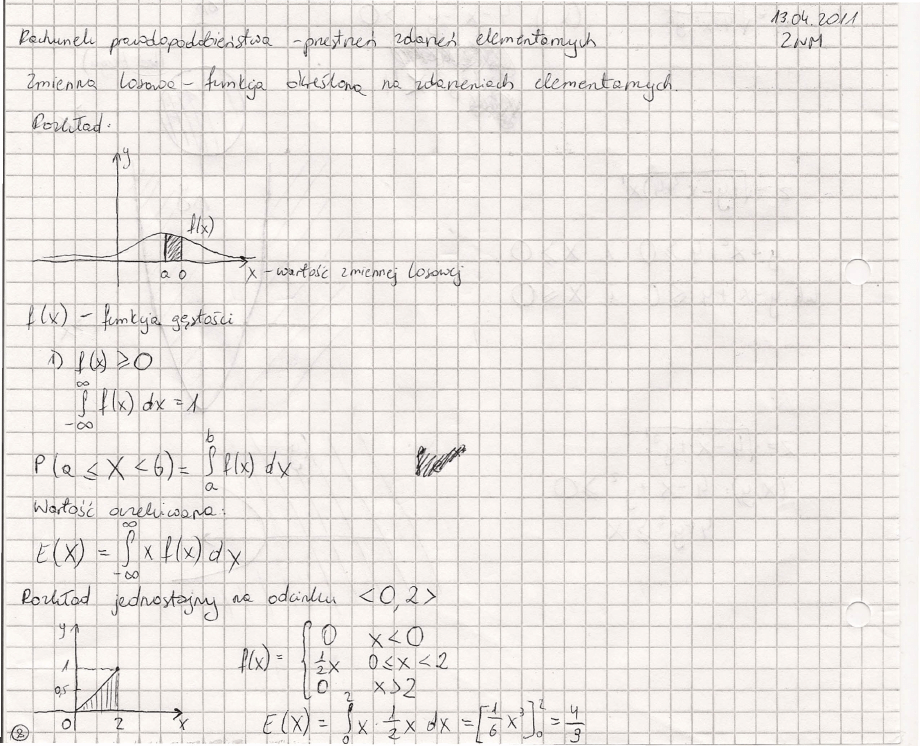 13.04.2011
Rachunek prawdopodobieństwa - przestrzeń zdarzeń elementarnych
ZNM
Zmienna losowa - funkcja określona na zdarzeniach elementarnych.
Rozkład:
y
f(x)
a b
x - wartość zmiennej losowej
f(x) - funkcja gęstości
1) f(x) ≥ 0
∫_{-∞}^{∞} f(x) dx = 1
P(a ≤ X < b) = ∫_a^b f(x) dx
Wartość oczekiwana:
E(X) = ∫_{-∞}^{∞} x f(x) dx
Rozkład jednostajny na odcinku <0,2>
y
1
0,5
0 2 x
f(x) = { 0 x<0
1/2 x 0≤x<2
0 x>2
E(X) = ∫_0^2 x · 1/2 x dx = [1/6 x³]_0^2 = 4/3
2